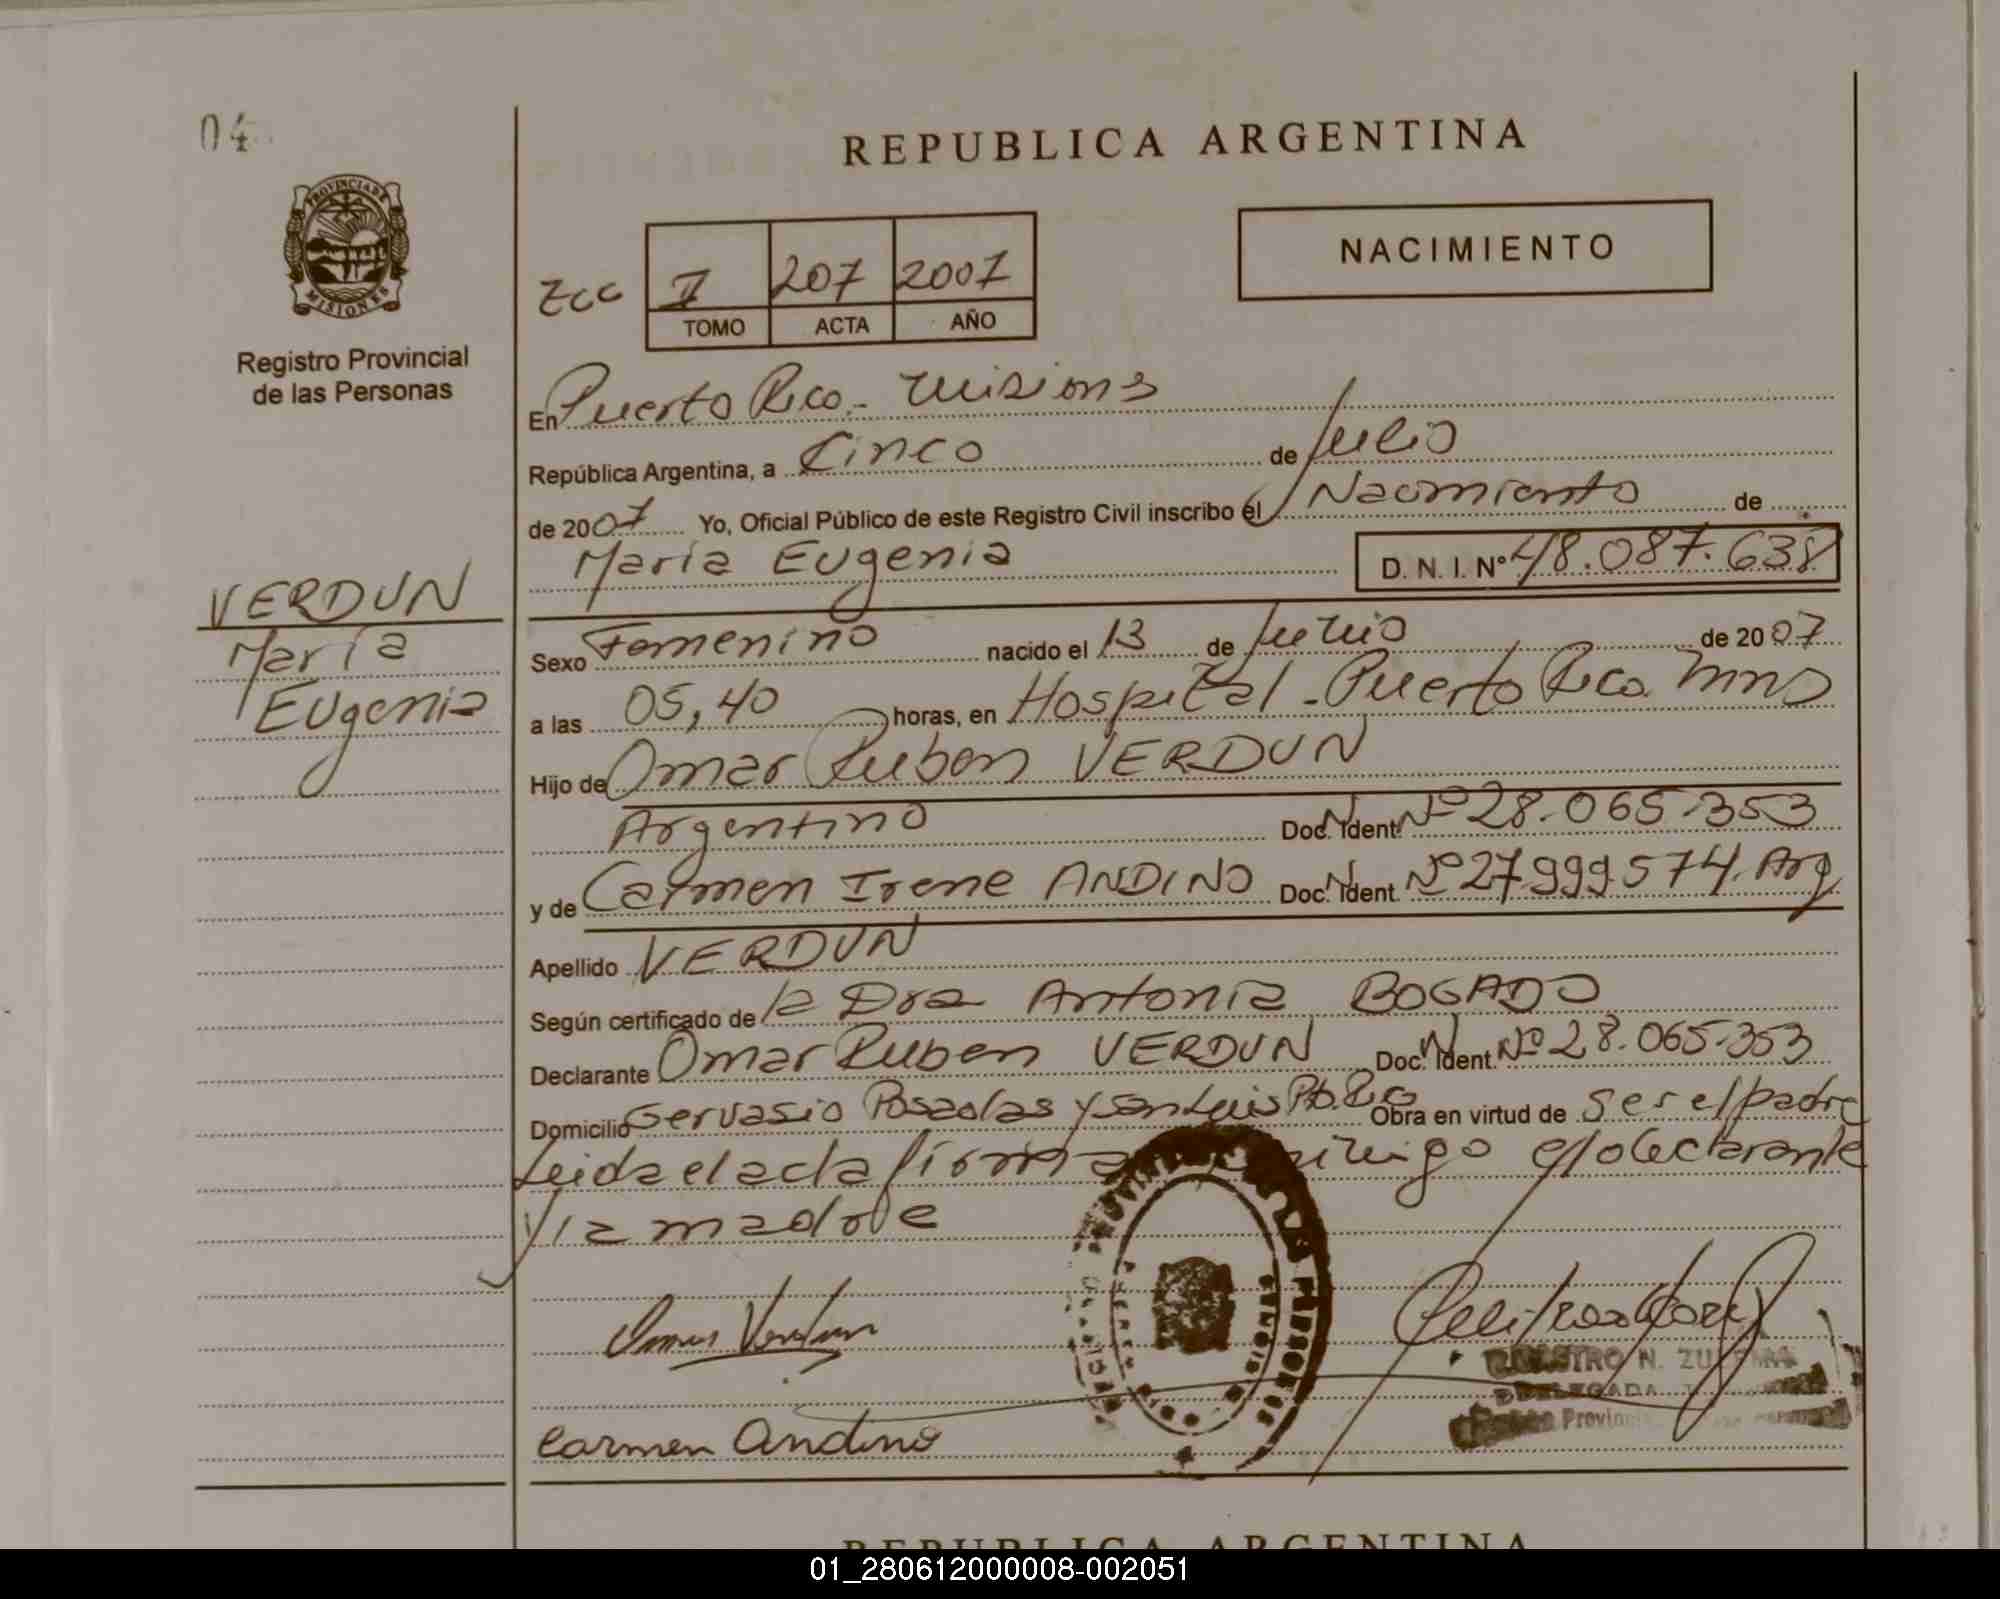 04
REPUBLICA ARGENTINA
PROVINCIA DE
MISIONES
Registro Provincial
de las Personas
NACIMIENTO
II 207 2007
TOMO ACTA AÑO
En Puerto Rico - Misiones
República Argentina, a Cinco de Julio
de 2007 Yo, Oficial Público de este Registro Civil inscribo el Nacimiento de
María Eugenia D. N. I. Nº 48.087.638
VERDUN
María
Eugenia
Sexo Femenino nacido el 13 de Junio de 2007
a las 05,40 horas, en Hospital - Puerto Rico Mnes
Hijo de Omar Ruben VERDUN
Argentino Doc. Ident. Nº 28.065.353
y de Carmen Irene ANDINO Doc. Ident. Nº 27.999.574. Arg
Apellido VERDUN
Según certificado de la Dra Antonia BOGADO
Declarante Omar Ruben VERDUN Doc. Ident. Nº 28.065.353
Domicilio Gervasio Posadas y San Luis Pto. Rico Obra en virtud de ser el padre
Leida el acta firma conmigo el declarante
y la madre
Omar Verdun
REGISTRO N. ZU
DELEGADA
Provinc
Carmen Andino
REPUBLICA ARGENTINA
01_280612000008-002051